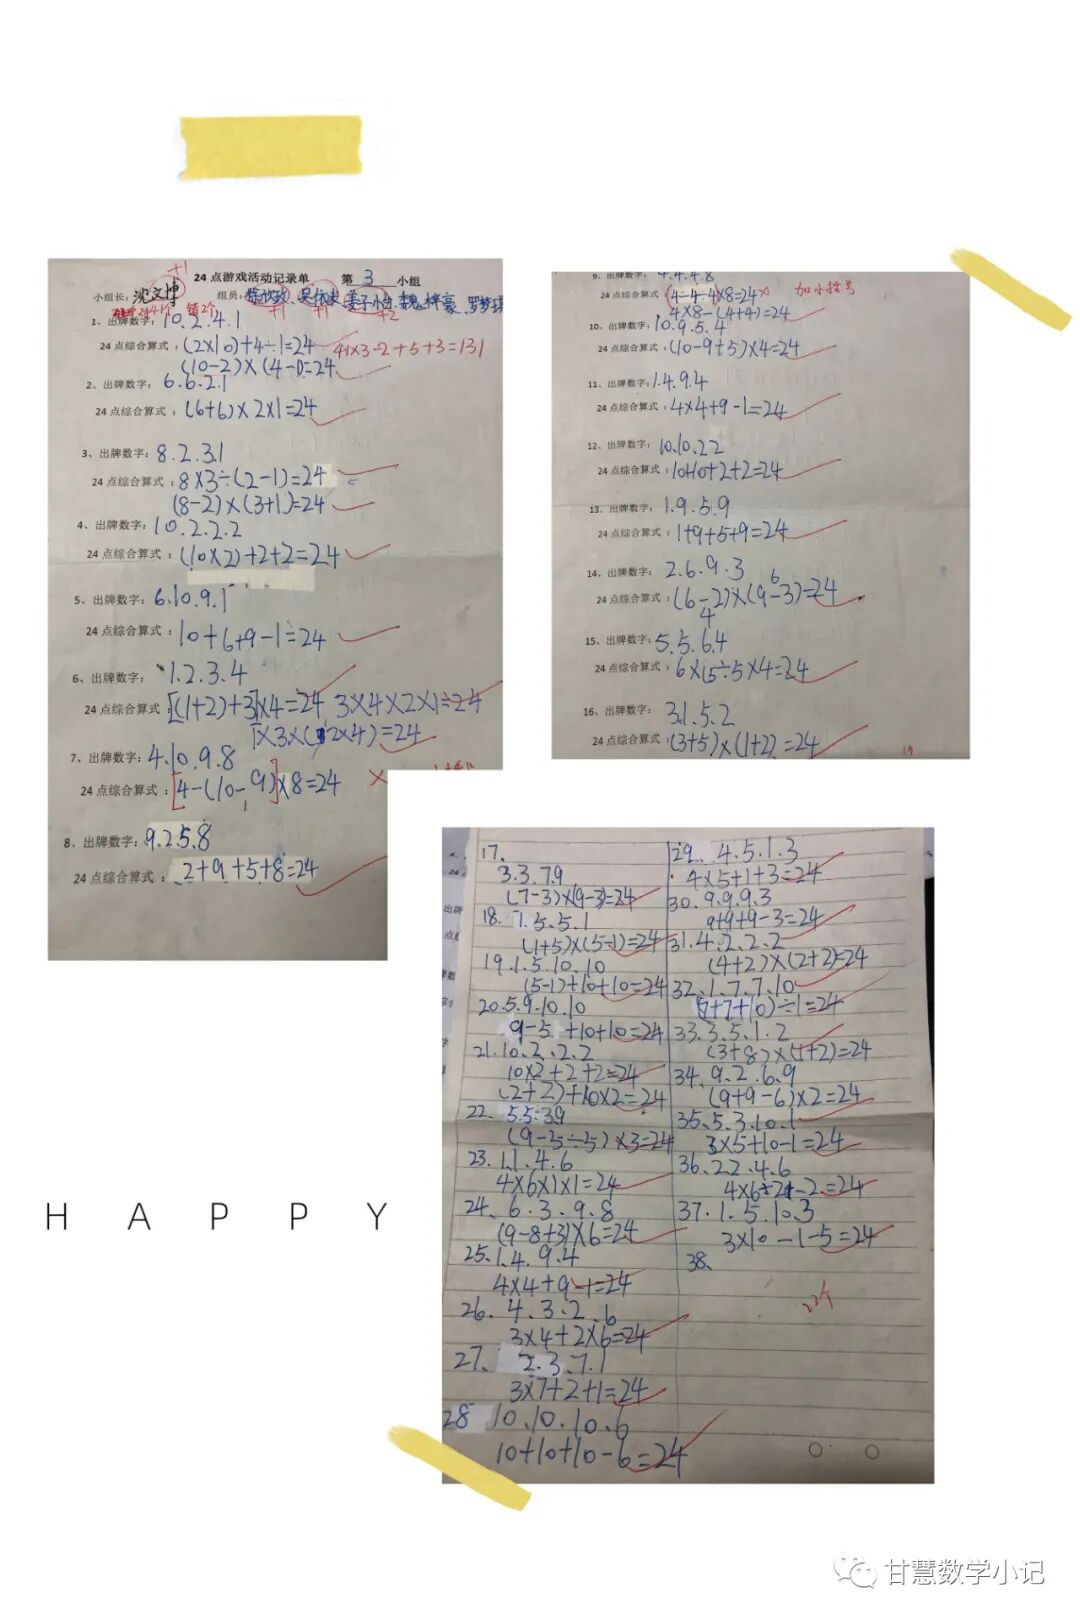 24点游戏活动记录单 第 3 小组
小组长: 沈文博 +1 组员:
+1 +1 +2
错2个
1、出牌数字: 10.2.4.1
24点综合算式: (2×10)+4÷1=24
41×3-2+5+3=131
(10-2)×(4-1)=24
2、出牌数字: 6.6.2.1
24点综合算式: (6+6)×2×1=24
3、出牌数字: 8.2.3.1
24点综合算式: 8×3÷(2-1)=24
(8-2)×(3+1)=24
4、出牌数字: 10.2.2.2
24点综合算式: (10×2)+2+2=24
5、出牌数字: 6.10.9.1
24点综合算式: 10+6+9-1=24
6、出牌数字: 1.2.3.4
24点综合算式: [(1+2)+3]×4=24 3×4×2×1=24
1×3×(2×4)=24
7、出牌数字: 4.10.9.8
24点综合算式: [4-(10-9)]×8=24 ×
1
8、出牌数字: 9.2.5.8
24点综合算式: 2+9+5+8=24
9、出牌数字: 4.4.4.8
24点综合算式: (4-4÷4)×8=24 × 加小括号
4×8-(4+4)=24
10、出牌数字: 10.9.5.4
24点综合算式: (10-9+5)×4=24
11、出牌数字: 1.4.9.4
24点综合算式: 4×4+9-1=24
12、出牌数字: 10.10.2.2
24点综合算式: 10+10+2+2=24
13、出牌数字: 1.9.5.9
24点综合算式: 1+9+5+9=24
14、出牌数字: 2.6.9.3
6
24点综合算式: (6-2)×(9-3)=24
4
15、出牌数字: 5.5.6.4
24点综合算式: 6×(5÷5×4=24
16、出牌数字: 3.1.5.2
24点综合算式: (3+5)×(1+2)=24
19
17、
3.3.7.9
(7-3)×(9-3)=24
18. 1.5.5.1
(1+5)×(5-1)=24
19.1.5.10.10
(5-1)+10+10=24
20.5.9.10.10
9-5+10+10=24
21.10.2.2.2
10×2+2+2=24
(2+2)+10×2=24
22. 5.5.3.9
(9-5÷5)×3=24
23.1.1.4.6
4×6×1×1=24
24、6.3.9.8
(9-8+3)×6=24
25.1.4.9.4
4×4+9-1=24
26. 4.3.2.6
3×4+2×6=24
27、 2.3.7.1
3×7+2+1=24
28 10.10.10.6
10+10+10-6=24
29、4.5.1.3
4×5+1+3=24
30.9.9.9.3
9+9+9-3=24
31.4.2.2.2
(4+2)×(2+2)=24
32.1.7.7.10
(7+7+10)÷1=24
33.3.5.1.2
(3+8)×(1+2)=24
34.9.2.6.9
(9+9-6)×2=24
35、5.3.10.1
3×5+10-1=24
36.2.2.4.6
4×6+2-2=24
37.1.5.10.3
3×10-1-5=24
38、
H A P P Y
甘慧数学小记